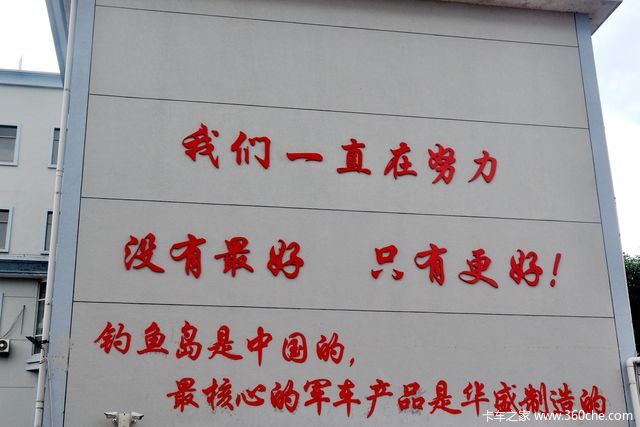 我们一直在努力
没有最好 只有更好!
钓鱼岛是中国的,
最核心的军车产品是华威制造的
卡车之家 www.360che.com